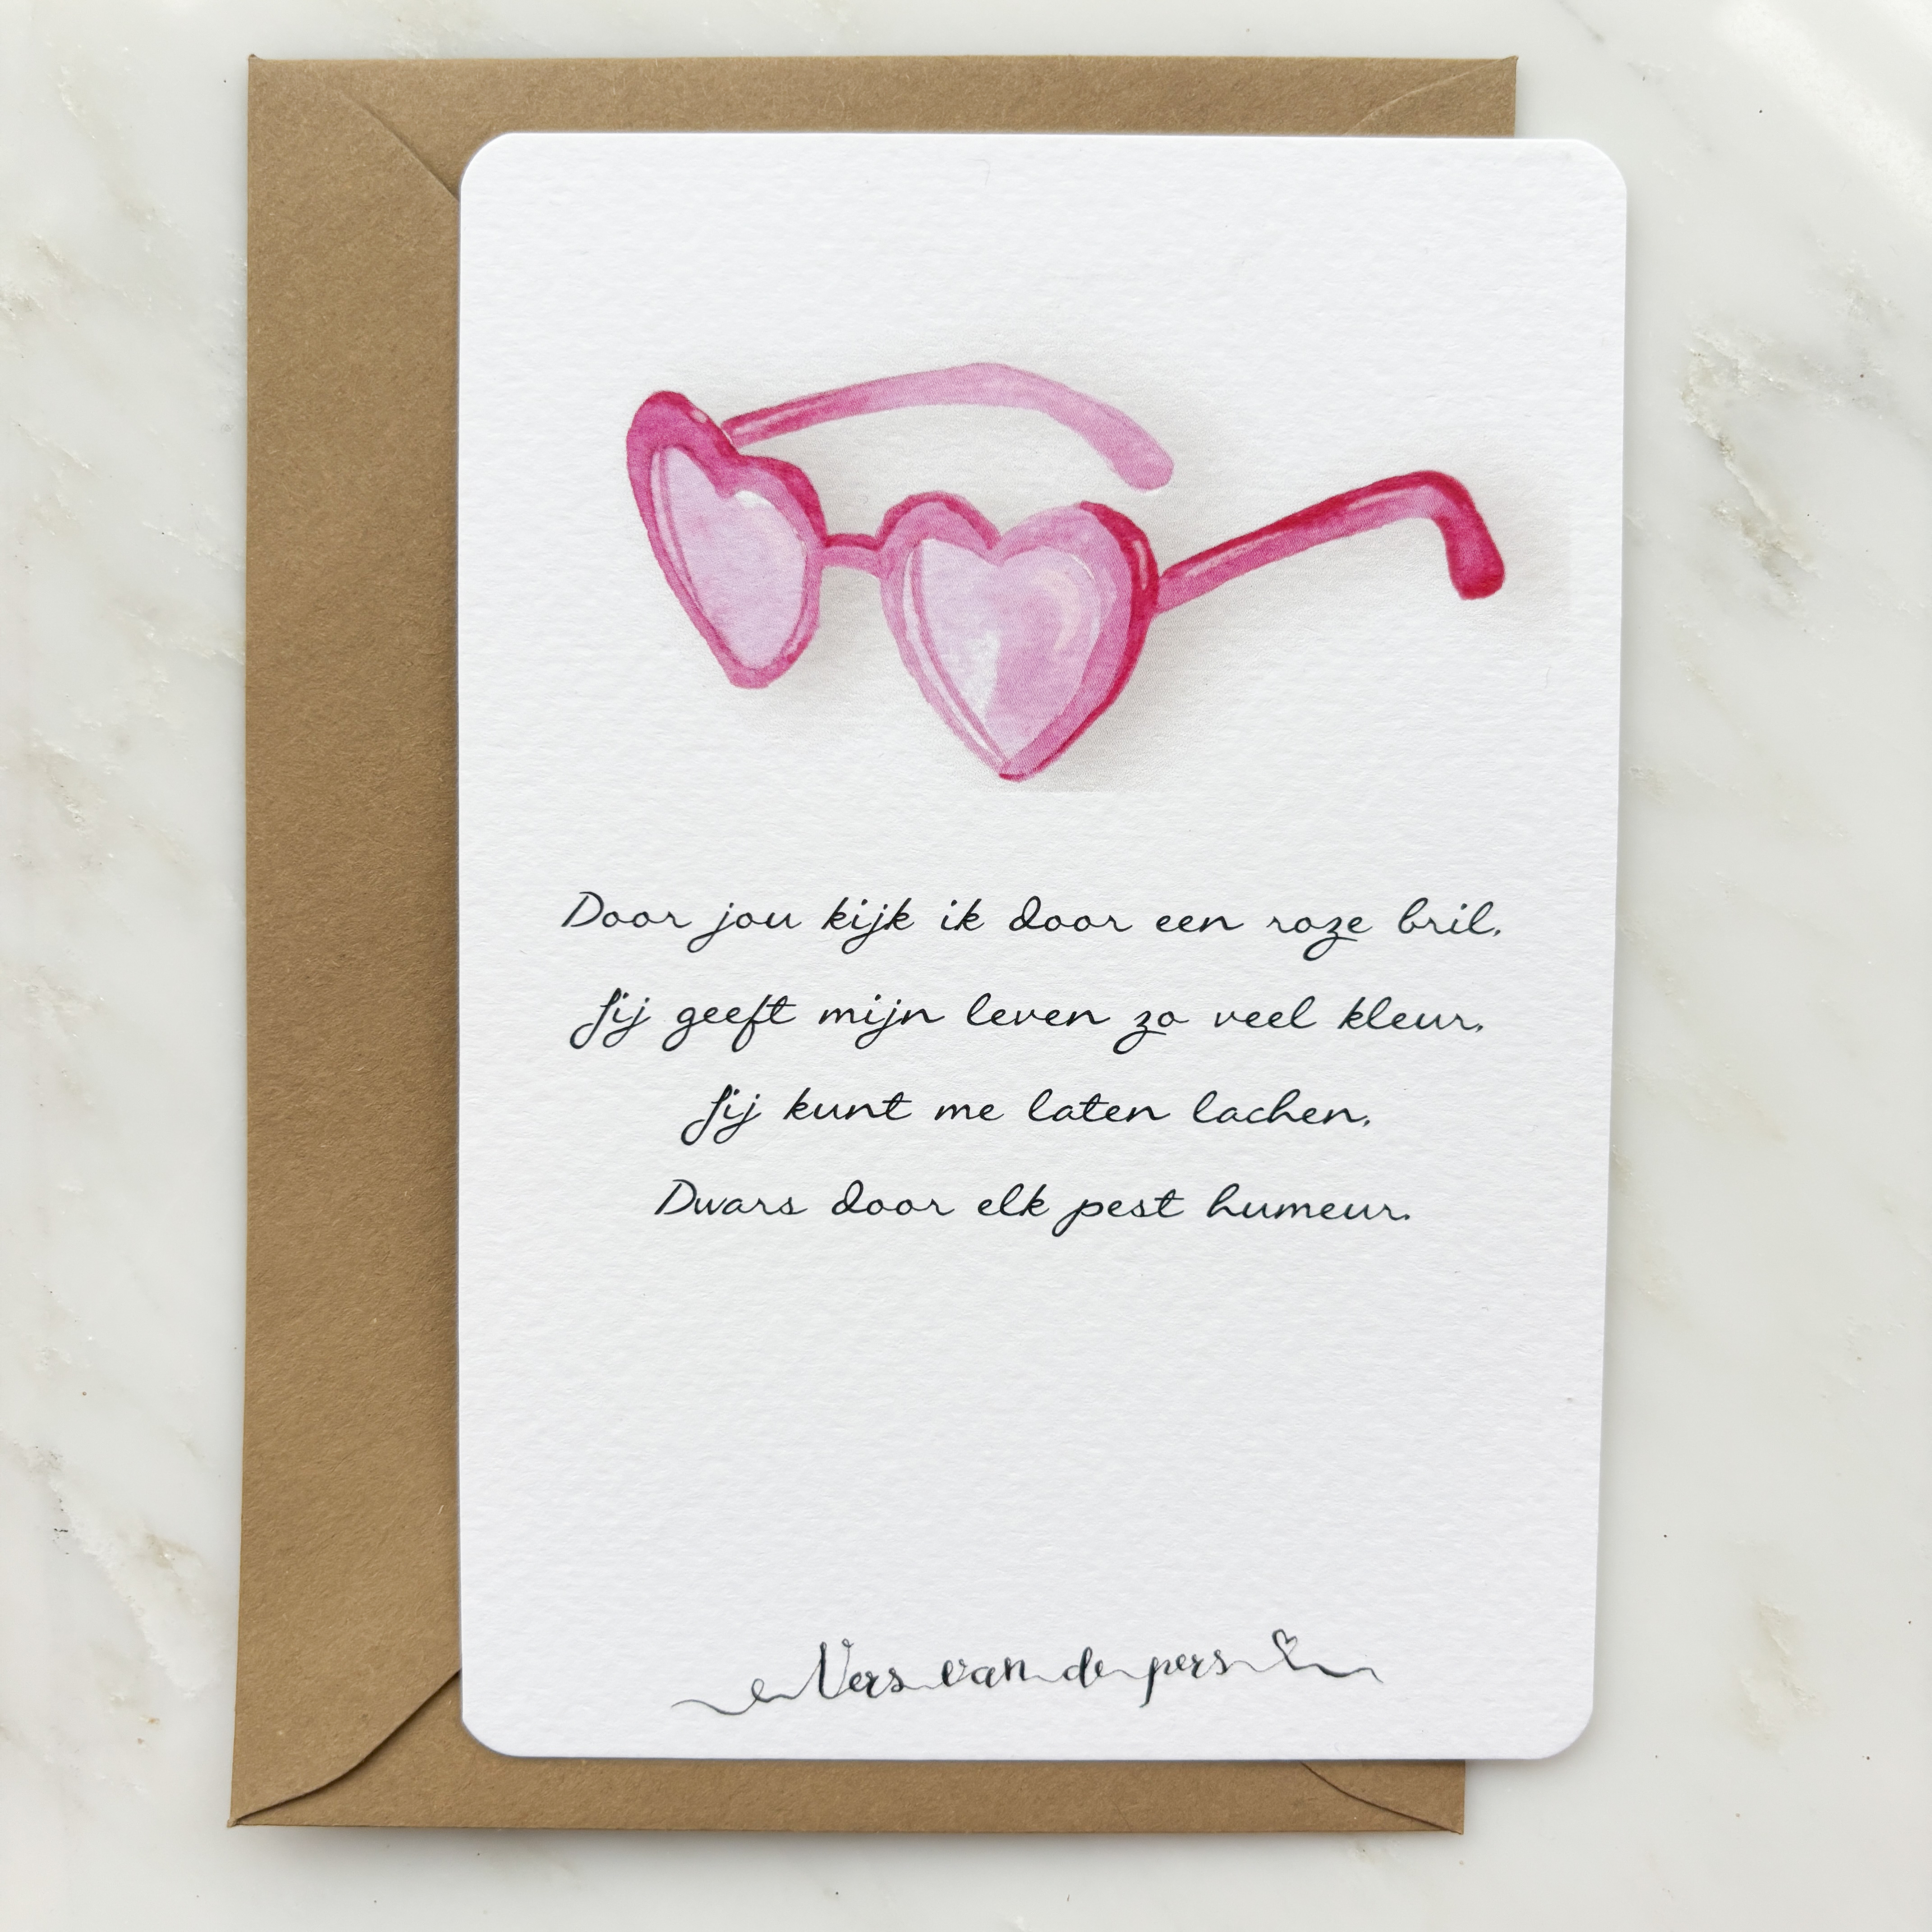 Door jou kijk ik door een roze bril,
Jij geeft mijn leven zo veel kleur,
Jij kunt me laten lachen,
Dwars door elk pest humeur.
Vers van de pers